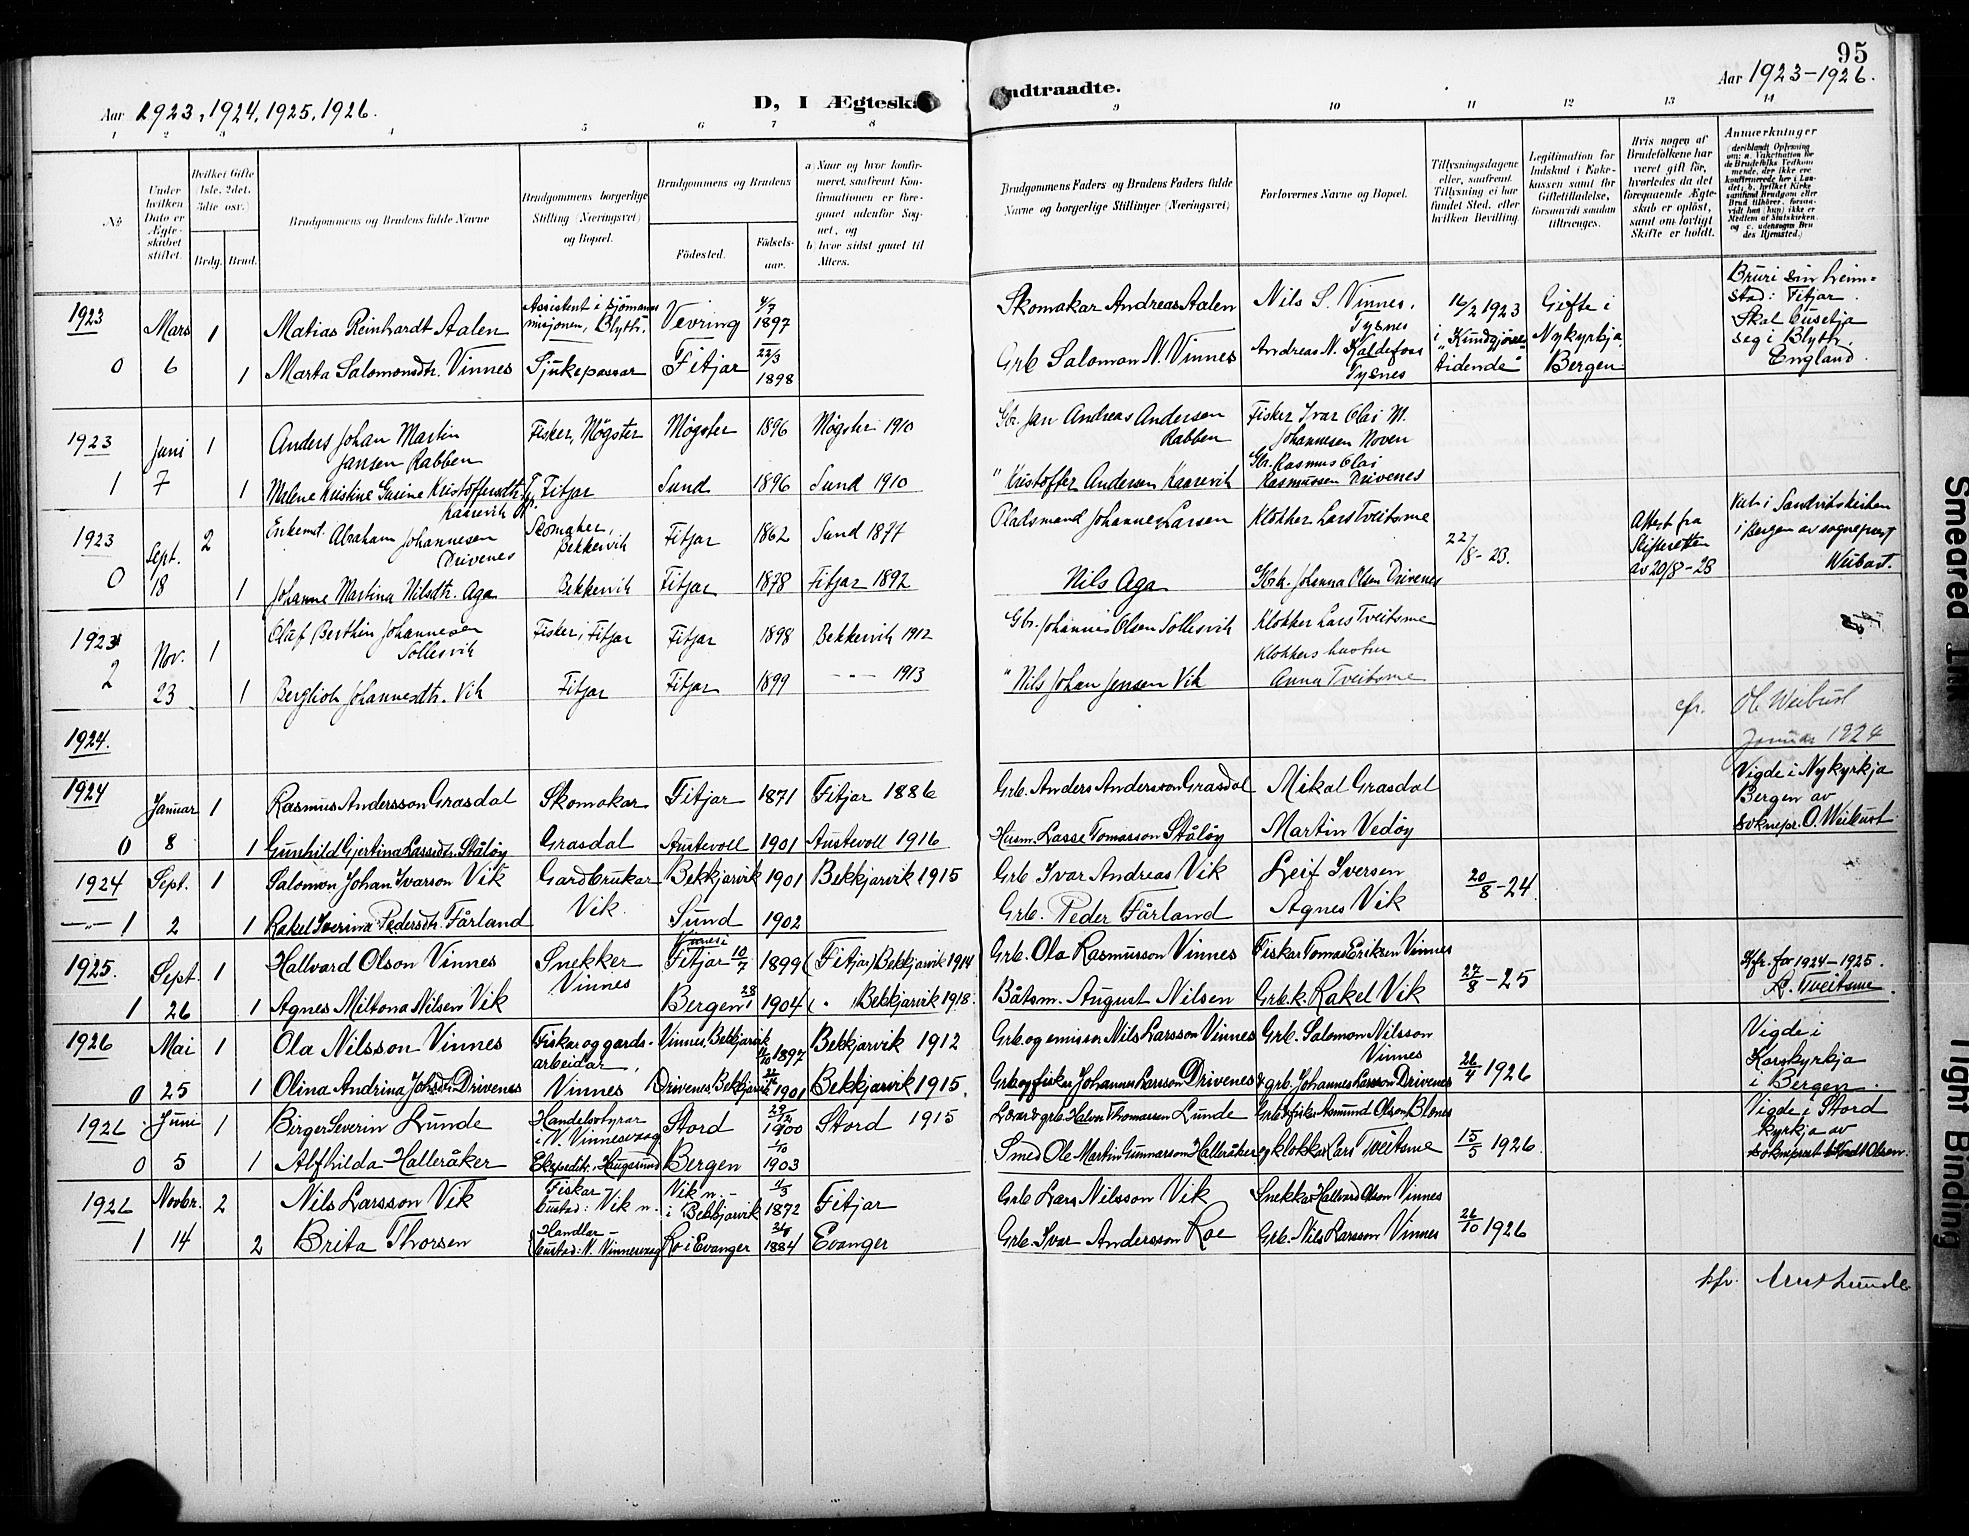 95
Aar 1923, 1924, 1925, 1926.
D, I Ægteska
ndtraadte.
Aar 1923-1926.
1 2 3 4 5 6 7 8
9 10 11 12 13 14
No
Under hvilken Dato er Ægteskabet stiftet.
Hvilket Gifte (1ste, 2det, 3die osv.)
Brdg. Brud.
Brudgommens og Brudens fulde Navne
Brudgommens borgerlige Stilling (Næringsvei) og Bopæl.
Brudgommens og Brudens
Födested.
Födselsaar.
a) Naar og hvor konfirmeret, saafremt Konfirmationen er foregaaet udenfor Sognet, og
b) hvor sidst gaaet til Alters.
Brudgommens Faders og Brudens Faders fulde Navne og borgerlige Stillinger (Næringsvei)
Forlovernes Navne og Bopæl.
Tillysningsdagene eller, saafremt Tillysning ei har fundet Sted, efter hvilken Bevilling.
Legitimation for Indskud i Enkekassen samt for Giftetilladelse, forsaavidt saadan tiltrænges.
Hvis nogen af Brudefolkene har været gift för, hvorledes da det foregaaende Ægteskab er oplöst, samt om lovligt Skifte er holdt.
Anmerkninger
1923 Mars 1 Matias Reinhardt Aalen Assistent i sjömannsmisjonen, Blyth. Vevring 4/7 1897
Skomakar Andreas Aalen Nils S. Vinnes, Tysnes 16/2 1923 i "Kundgjörelsestidende" Gifte i Nykyrkja, Bergen
Bruri sin heimstad: Fitjar. Skal busetja seg i Blyth, England.
0 6 1 Marta Salomonsdtr. Vinnes Sjukepassar Fitjar 22/3 1898
Grb Salomon N. Vinnes Andreas N. Kaldefoss Tysnes
1923 Juni 1 Anders Johan Martin Jansen Rabben Fisker, Møgster Møgster 1896 Møgster 1910
Gbr. Jan Andreas Andersen Rabben Fisker Ivar Olai M. Johannesen Noven
1 7 1 Malene Kristine Gurine Kristoffersdtr. Kaarevik Fitjar Sund 1896 Sund 1910
" Kristoffer Andersen Kaarevik Gbr. Rasmus Olai Rasmussen Drivenes
1923 Sept. 2 Enkemt. Abraham Johannesen Drivenes Skomaker, Bekkervik Fitjar 1862 Sund 1877
Pladsmand Johannes Larsen Klokker Lars Tveitsme 22/8-23. Attest fra Skifteretten av 20/8-23
Viet i Sandvikskirken i Bergen av sogneprest Weibust.
0 18 1 Johanne Martina Nilsdtr. Aga Bekkervik Fitjar 1878 Fitjar 1892
Nils Aga Gbrk. Johanna Olsen Drivenes
1923 Nov. 1 Olaf Berthin Johannesen Sollesvik Fisker, Fitjar Fitjar 1898 Bekkervik 1912
Gbr. Johannes Olsen Sollesvik Klokker Lars Tveitsme
2 23 1 Bergliot Johannesdtr. Vik Fitjar Fitjar 1899 -"- 1913
" Nils Johan Jensen Vik Klokkers hustru Anna Tveitsme
cfr. Ol. Weibust Januar 1924
1924.
1924 Januar 1 Rasmus Andersson Grasdal Skomakar Fitjar 1871 Fitjar 1886
Grb. Anders Andersson Grasdal Mikal Grasdal
Vigde i Nykyrkja Bergen av soknepr. O. Weibust
0 8 1 Gunhild Gjertina Lassedtr. Ståløy Grasdal Austevoll 1901 Austevoll 1916
Husm. Lasse Tomasson Ståløy Martin Vedøy
1924 Sept. 1 Salomon Johan Ivarson Vik Gardbrukar Vik. Bekkjarvik 1901 Bekkjarvik 1915
Grb Ivar Andreas Vik Leif Iversen 20/8-24
-"- 1 2 1 Rakel Iverina Pedersdtr. Fårland Sund 1902
Grb. Peder Fårland Agnes Vik
1925. Sept. 1 Hallvard Olson Vinnes Snekker Vinnes Vinnes i Fitjar 10/7 1899 (Fitjar) Bekkjarvik 1914
Grb. Ola Rasmusson Vinnes Fiskar Tomas Eriksen Vinnes 27/8-25
Kfr. for 1924-1925. L. Tveitsme.
1 26 1 Agnes Miltona Nilsen Vik Bergen 28/1 1904 ( " ) Bekkjarvik 1918.
Båtsm. August Nilsen Grb.k. Rakel Vik
1926 Mai 1 Ola Nilsson Vinnes Fiskar og gardsarbeidar, Vinnes Vinnes, Bekkjarvik 1897 Bekkjarvik 1912
Grb. og emissær Nils Larsson Vinnes Grb. Salomon Nilsson Vinnes 26/4 1926
Vigde i Korskyrkja i Bergen.
0 25 1 Olina Andrina Johsdtr. Drivenes Drivenes, Bekkjarvik 1901 Bekkjarvik 1915.
Grb. og fiskar Johannes Larsson Drivenes & grb. Johannes Larsson Drivenes
1926 Juni 1 Birger Severin Lunde Handelsstyrar i N. Vinnesvåg Stord 29/12 1900 Stord 1915
Lærar & grb. Halvor Thomassen Lunde Grb & fiskar Asmund Olson Blønes 15/5 1926.
Vigde i Stord kyrkja av sokneprest Olsen.
0 5 1 Alfhilda Halleråker Ekspeditr. i Haugesund Bergen 1/10 1903
Smed Ole Martin Gunnarson Halleråker og klokkar Lars Tveitsme
1926 Novbr. 2 Nils Larsson Vik Fiskar - bustad: Vik n. Vik n. - i Bekkjarvik 4/3 1872 Fitjar
Grb Lars Nilsson Vik Snekkar Hallvard Olson Vinnes 26/10 1926
1 14 2 Brita Thorsen Handlar - bustad: N. Vinnesvaag Ro i Evanger 1884 Evanger
Grb. Ivar Andersson Roe Grb. Nils Larsson Vinnes
kfr. Lunde
Smeared Ink
Tight Binding